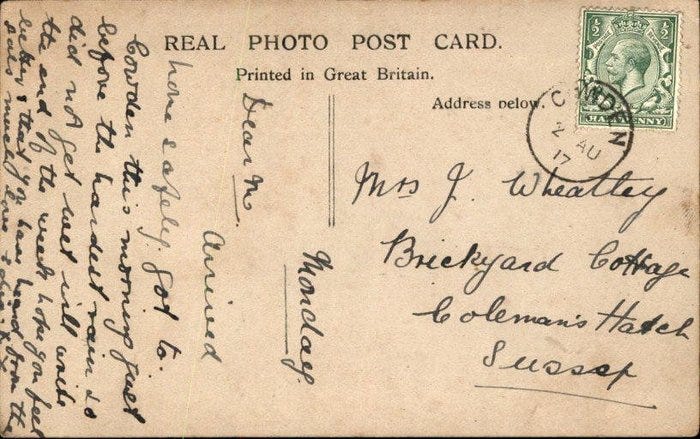 REAL PHOTO POST CARD.
Printed in Great Britain.
Address below.
½ ½
HALFPENNY
COWDEN
2 AU
17
Mrs J. Wheatley
Brickyard Cottage
Coleman's Hatch
Sussex
Monday
Dear M.
arrived
home safely. got to
Cowden this morning just
before the hardest rain so
did not get wet will write
the end of the week hope you feel
better & that you have heard from the
much love